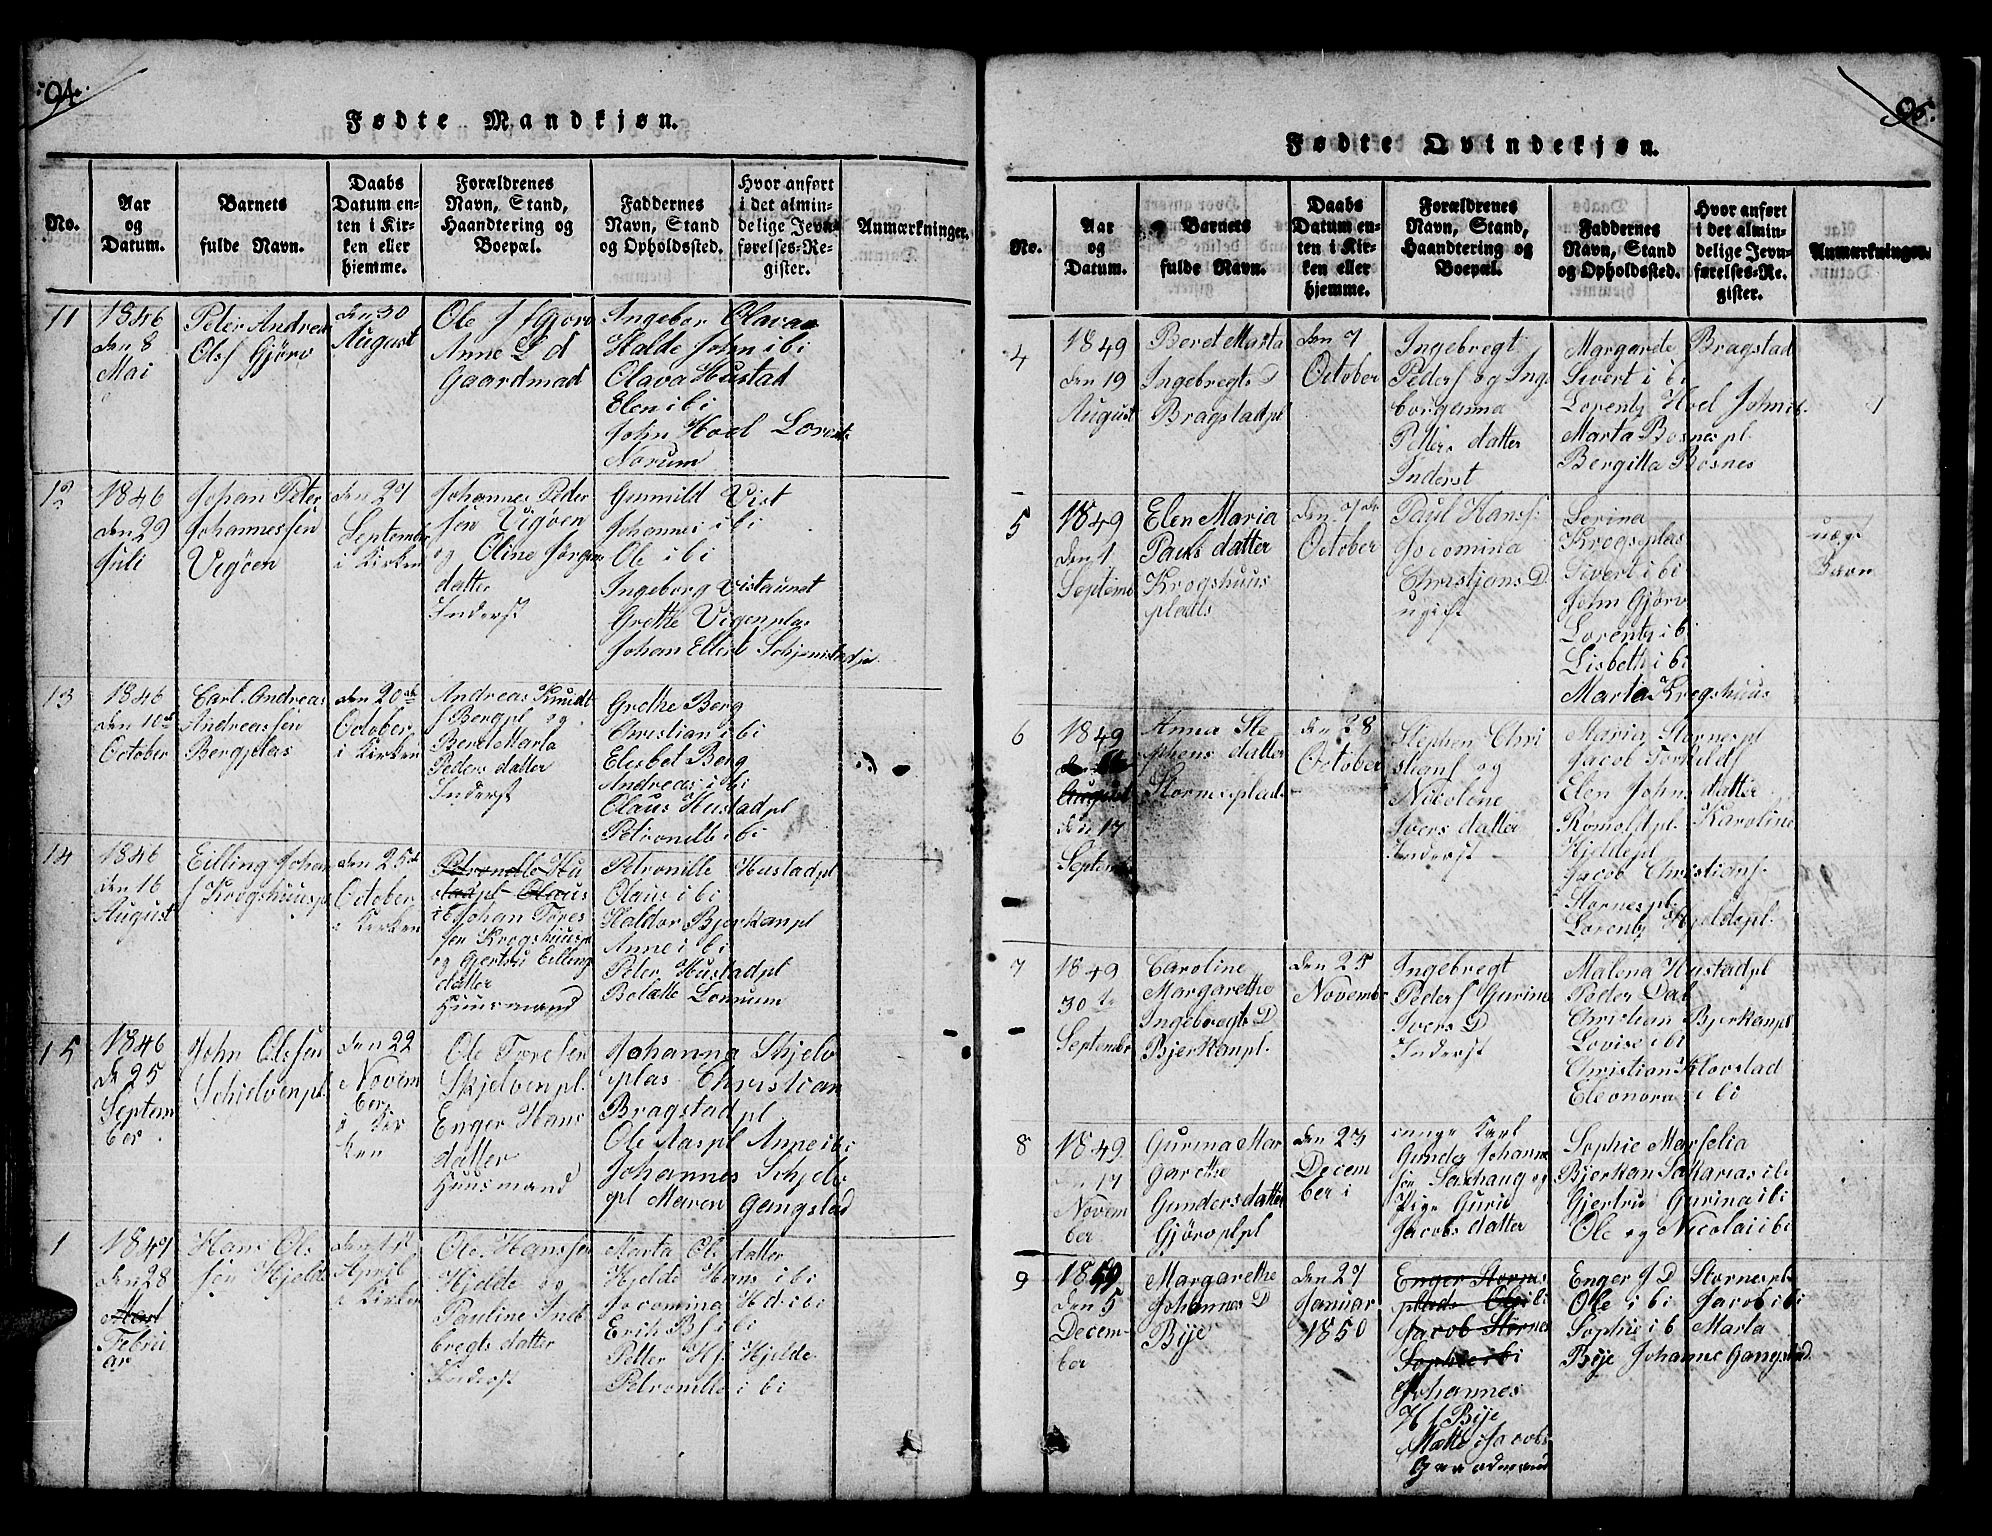 94.
Fødte Mandkjøn.
No.
Aar
og
Datum.
Barnets
fulde Navn.
Daabs
Datum en-
ten i Kir-
ken eller
hjemme.
Forældrenes
Navn, Stand,
Haandtering og
Boepæl.
Faddernes
Navn, Stand
og Opholdssted.
Hvor anført
i det almin-
delige Jevn-
førelses-Re-
gister.
Anmærkninger.
11
1846
den 8
Mai
Peter Andreas
Olsf Gjørv
den 30
August
Ole
Anne
Gaardmad
Ingebor Olavaa
Halde John i bi
Olava Hustad
Elen i bi
John Hoel Lorents
Norum
12
1846
den 29
Juli
Johan Peter
Johannessen
Vigøen
den 27
September
i Kirken
Johannes Peder
sen Vigøen
og Oline Jørgens
datter
Inderst
Gunnild Vist
Johannes i bi
Ole i bi
Ingeborg Vistaunet
Grethe Vigenplas
Johan Ellert Schjemstadpl
13
1846
den 10de
October
Carl Andreas
Andreassen
Bergplas
den 20de
October
i Kirken
Andreas Knudt
s Bergpl og
Beret Marta
Peders datter
Inderst
Grethe Berg
Christian i bi
Elesbet Berg
Andreas i bi
Olaus Hustadpl
Petronille i bi
14
1846
den 16
August
Eilling Johan
s Krogshuuspl
den 25de
October
i Kirken
Petronille Hu
stadpl Olaus
i bi Johan Tores
sen Krogshuuspl
og Gjertru Eilling
datter
Huusmand
Petronille Hustadpl
Olaus i bi
Haldor Bjerkanpl
Anne i bi
Peter Hustadpl
Belatte Lonnum
15
1846
de 25
Septem
ber
John Olssen
Schjelvenpl
den 22
Novem
ber
i Kir
ken
Ole Toresen
Skjelvenpl
Enger Hans
datter
Huusmand
Johanna Skjelv
plas Christian
Bragstadpl
Ole Aaspl Anne i bi
Johannes Schjelv
pl Maren Gangstad
1
1847
den 28
Februar
Hans Ols
sen Hjelde
April
i Kirken
Ole Hanssen
Hjelde og
Pauline Inde
bregts datter
Inderst
Marta Ols datter
Hjelde Hans i bi
Jocomina H d i bi
Erich B s i bi
Petter H s Hjelde
Petronille i bi
95.
Fødte Qvindekjøn.
No.
Aar
og
Datum.
Barnets
fulde Navn.
Daabs
Datum en-
ten i Kir-
ken eller
hjemme.
Forældrenes
Navn, Stand,
Haandtering og
Boepæl.
Faddernes
Navn, Stand
og Opholdssted.
Hvor anført
i det almin-
delige Jevn-
førelses-Re-
gister.
Anmærkninger.
4
1849
den 19
August
Beret Marta
Ingebregts D
Bragstadpl
den 7
October
Ingebregt
Peders og Inge
borganna
Petters datter
Inderst
Margarde Bragstad
Sivert i bi
Lorents Hoel John i b
Marta Bosnes pl
Bergitta Røsnes
5
1849
den 1
Septemb
Elen Maria
Pauls datter
Krogshuus
plads
den 7de
October
Paul Hanss
Jocomina
Christjans D
ugift
Serina
Krogsplas
Sivert i bi
John Gjørv
Lorents i bi
Lisbeth i bi
Marta Krogshuus
uægt
Barn
6
1849
August
den 17
Septemb
Anna Ste
phens datter
Stornesplads
den 28
October
Stephen Chri
stians og
Nicoline
Ivers datter
Inderst
Maria Stornespl
Jacob Torkilds
Elen Johns datter
Romoldpl Karoline
Hjeldepl
Jacob Christians
Stornespl
Lorents Hjeldepl.
7
1849
30te
September
Caroline
Margarethe
Ingebregts D
Bjerkanpl.
den 25
Novemb
Ingebregt
Peders Gurine
Ivers D
Inderst
Malena Hustadpl
Peder Dal
Christian Bjerkanpl
Lovise i bi
Christian Klovstad
Eleonora i bi
8
1849
den 17
Novem
ber
Gurina Mar
garethe
Gunders datter
Gjørvplpl
den 23
Decem
ber i
unge Karl
Gunder Johanne
sen Saxhaug og
Pige Guru
Jacobs datter
Sophie Marselia
Bjerkan Sakarias i bi
Gjertru Gurina i bi
Ole og Nicolai i bi
9
1849
den 5
Decem-
ber
Margarethe
Johannes D
Bije
den 27
Januar
1850
Enger Stornes
plads Ole i bi
Jacob Stornes
Sophie i bi
Johannes
H s Bije
Matte Jacobs
Gaardmand
Enger J D Stornespl
Ole i bi Jacob i bi
Sophie i b Marta
Bije Johanne Gangstad